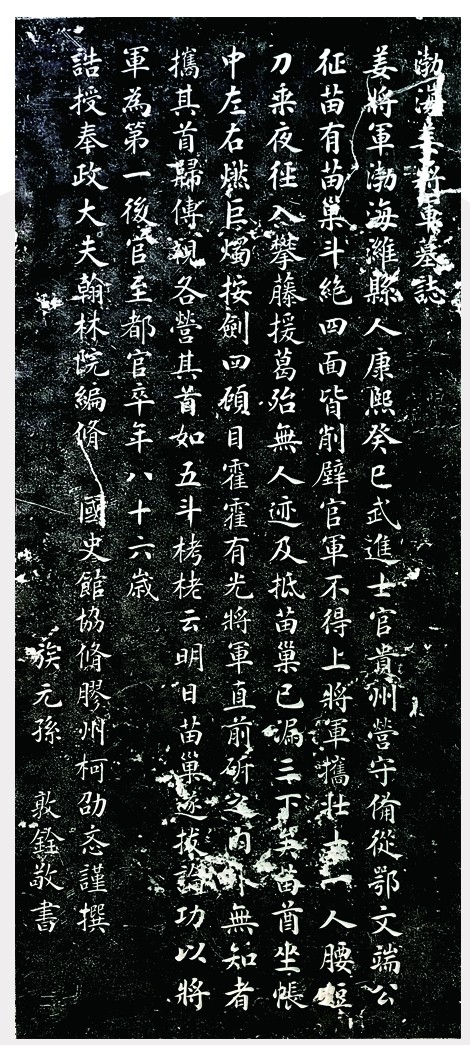 渤海姜將軍墓誌
姜將軍渤海濰縣人康熙癸巳武進士官貴州營守備從鄂文端公
征苗有苗巢斗絕四面皆削壁官軍不得上將軍攜壯士一人腰短
刀乘夜徃入攀藤援葛殆無人迹及抵苗巢已漏三下矣苗酋坐帳
中左右燃巨燭按劍四顧目霍霍有光將軍直前斫之內外無知者
攜其首歸傳視各營其首如五斗栲栳云明日苗巢遂拔論功以將
軍為第一後官至都官卒年八十六歲
誥授奉政大夫翰林院編脩 國史館協脩膠州柯劭忞謹撰
族元孫 敦銓敬書